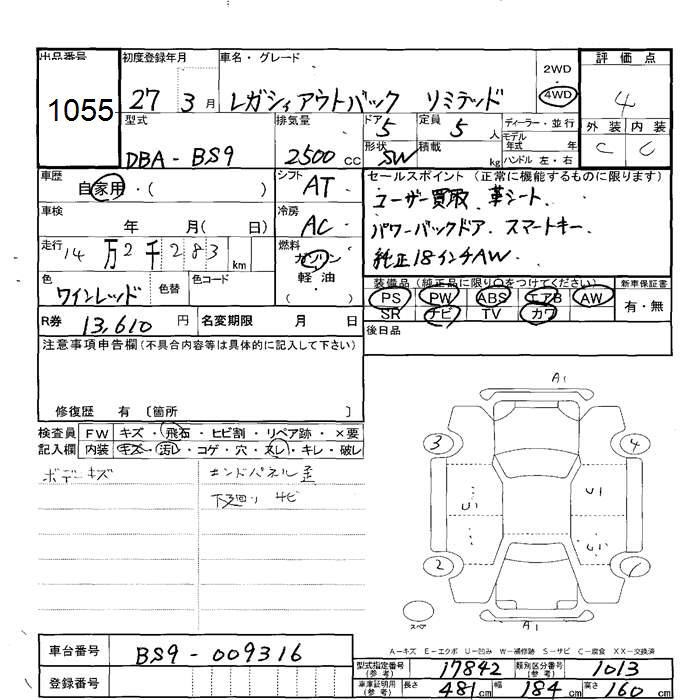 出品番号 初度登録年月 車名・グレード 2WD 評価点
1055 27 3月 レガシィアウトバック リミテッド 4WD 4
型式 排気量 ドア 5 定員 5人 ディーラー・並行 外装 内装
DBA-BS9 2500cc 形状 SW 積載 kg モデル年式 年式 C C
ハンドル 左・右
車歴 自家用・( ) シフト AT セールスポイント (正常に機能するものに限ります)
ユーザー買取、革シート、
車検 年 月( 日) 冷房 AC パワーバックドア、スマートキー、
走行 14万2千283km 燃料 ガソリン 軽油 ( ) 純正18インチAW.
色 ワインレッド 色替 色コード 装備品(純正品に限り○をつけてください) 新車保証書
PS PW ABS エアB AW 有・無
SR ナビ TV カワ
R券 13,610円 名変期限 月 日 後日品
注意事項申告欄(不具合内容等は具体的に記入して下さい)
修復歴 有〔箇所 〕
検査員 FW キズ・飛石・ヒビ割・リペア跡・×要
記入欄 内装 キズ・汚れ・コゲ・穴・スレ・キレ・破レ
ボデーキズ エンドパネル歪
下廻り サビ
A1
3 4
U1 U1
U1
2 1
スペ A1
A-キズ E-エクボ U-凹み W-補修跡 S-サビ C-腐食 XX-交換済
車台番号 BS9-009316
型式指定番号(参考) 17842 類別区分番号(参考) 1013
登録番号 車庫証明用(参考) 長さ 481cm 幅 184cm 高さ 160cm